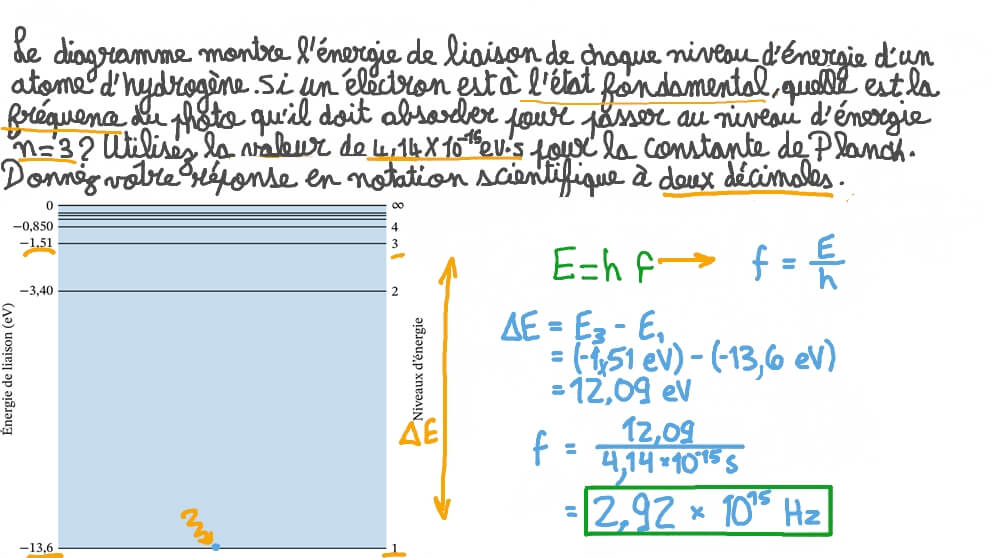 Le diagramme montre l'énergie de liaison de chaque niveau d'énergie d'un
atome d'hydrogène. Si un électron est à l'état fondamental, quelle est la
fréquence du photo qu'il doit absorber pour passer au niveau d'énergie
n=3? Utilisez la valeur de 4,14×10⁻¹⁵ eV.s pour la constante de Planck.
Donnez votre réponse en notation scientifique à deux décimales.
0 ∞
−0,850 4
−1,51 3
−3,40 2
−13,6 1
Énergie de liaison (eV)
Niveaux d'énergie
ΔE
E=hf → f = E/h
ΔE = E₃ − E₁
= (−1,51 eV) − (−13,6 eV)
= 12,09 eV
f = 12,09 / 4,14×10⁻¹⁵ s
= 2,92 × 10¹⁵ Hz